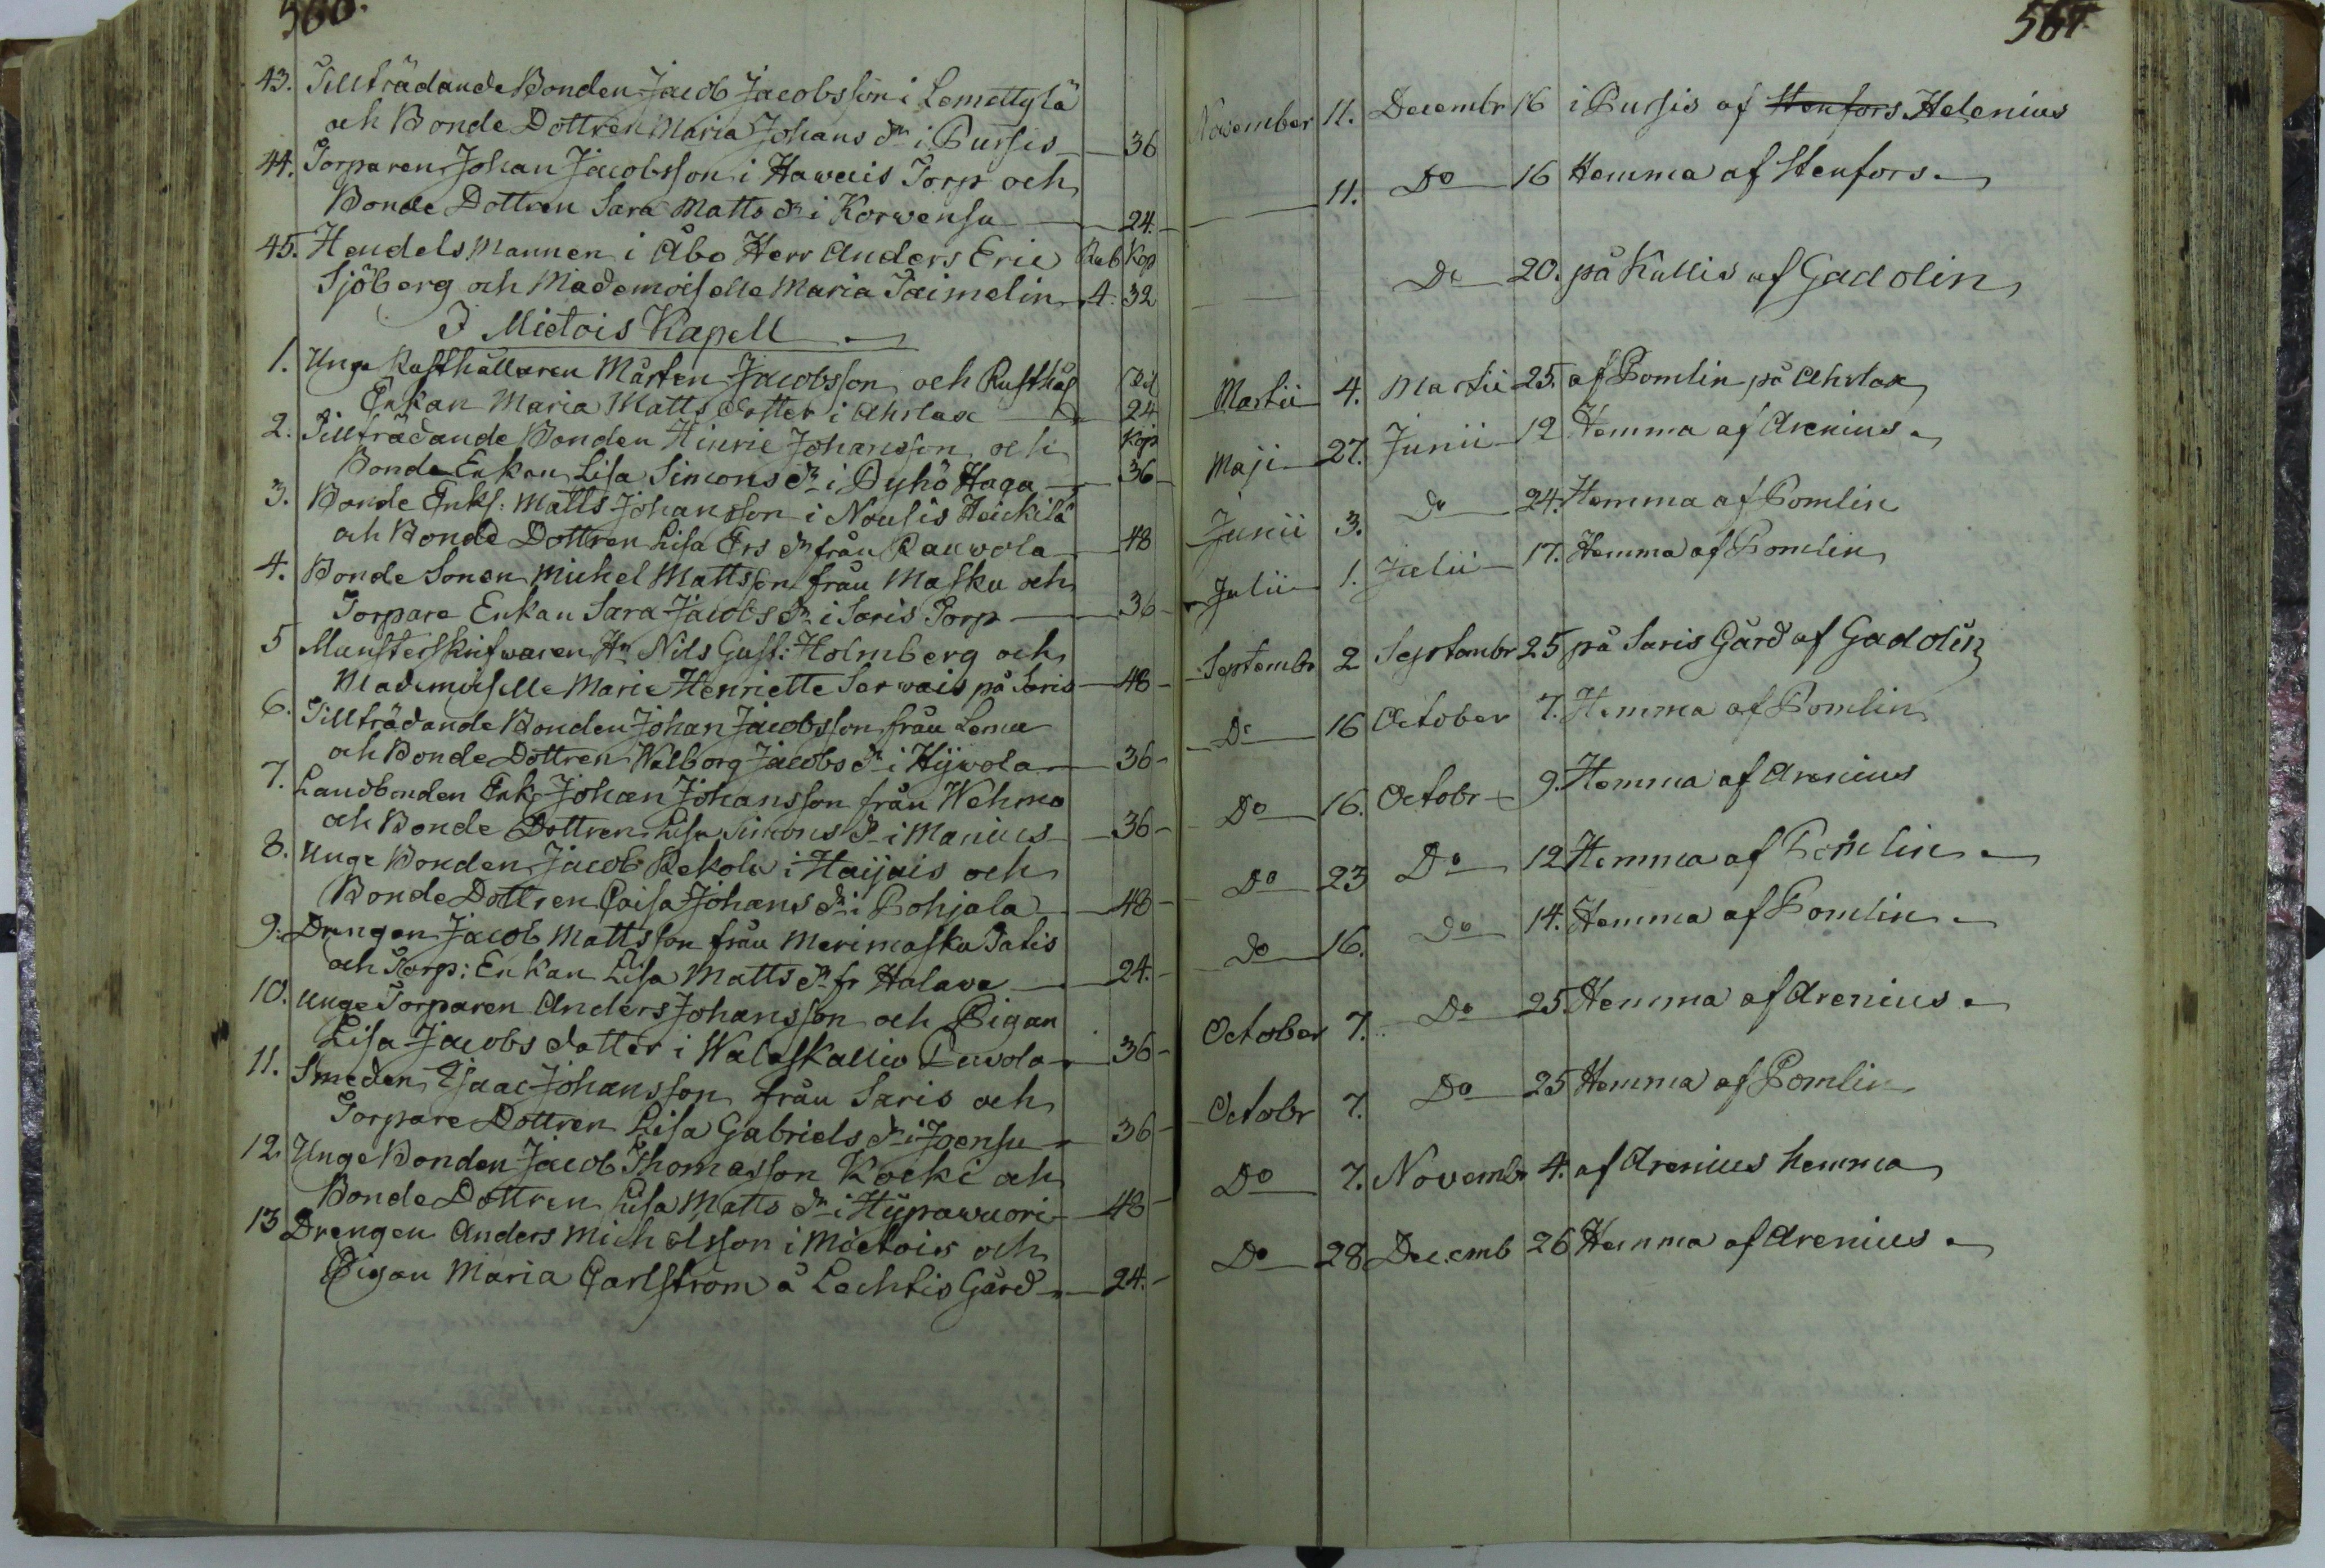 560.
43. Tillträdande Bonden Jacob Jacobsson i Lemettylä
och Bonde Dottren Maria Johans dr i Pursis 36
44. Torparen Johan Jacobsson i Hawais Torp och
Bonde Dottren Sara Matts dr i Korwensu 24.
45. Handels Mannen i Åbo Herr Anders Eric Rub Kop
Sjöberg och Mademoiselle Maria Taimelin 4. 32
I Mietois Kapell
1. Unge Rusthållaren Mårten Jacobsson och Rusthåls
Enkan Maria Matts dotter i Ahrlax 24
2. Tillträdande Bonden Hinric Johansson och Kop
Bonde Enkan Lisa Simons dr i Pyhö Haga 36
3. Bonde Enkl: Matts Johansson i Nousis Heickilä
och Bonde Dottren Lisa Ers dr från Rauwola 48
4. Bonde Sonen Michel Mattsson från Masku och
Torpare Enkan Sara Jacobs dr i Saris Torp 36
5 Munsterskrifwaren Hr Nils Gust: Holmberg och
Mademoiselle Marie Henriette Serwais på Saris 48
6. Tillträdande Bonden Johan Jacobsson från Lemu
och Bonde Dottren Walborg Jacobs dr i Hyjwola 36
7. Landbonden Enk Johan Johansson från Wehmo
och Bonde Dottren Lisa Simons dr i Manius 36
8. Unge Bonden Jacob Rekola i Haijais och
Bonde Dottren Caisa Johans dr i Pohjala 48
9. Drengen Jacob Mattsson från Merimasku Tatis
och Torp: Enkan Lisa Matts dr fr Halawa 24.
10. Unge Torparen Anders Johansson och Pigan
Lisa Jacobs dotter i Walaskallio Pawola 36
11. Smeden Isaac Johansson från Saris och
Torpare Dottren Lisa Gabriels dr i Joensu 36
12. Unge Bonden Jacob Thomasson Kocki och
Bonde Dottren Lisa Matts dr i Hiipawuori 48
13 Drengen Anders Michelsson i Mietois och
Pigan Maria Carlström å Lechtis Gård 24.
561.
November 11. Decembr 16 i Pursis af Stenfors Helenius
11. Do 16 Hemma af Stenfors
Do 20. på Kallis af Gadolin
Martii 4. Martii 25. af Pomlin på Ahrlax
Maji 27. Junii 12 Hemma af Arenius
Junii 3. Do 24. Hemma af Pomlin
Julii 1. Julii 17. Hemma af Pomlin
Septembr 2 Septembr 25 på Saris Gård af Gadolin
Do 16 October 7. Hemma af Pomlin
Do 16. Octobr 9. Hemma af Arenius
Do 23 Do 12 Hemma af Pomlin
Do 16. Do 14. Hemma af Pomlin
October 7. Do 25 Hemma af Arenius
Octobr 7. Do 25 Hemma af Pomlin
Do 7. Novembr 4. af Arenius hemma
Do 28 Decemb 26 Hemma af Arenius